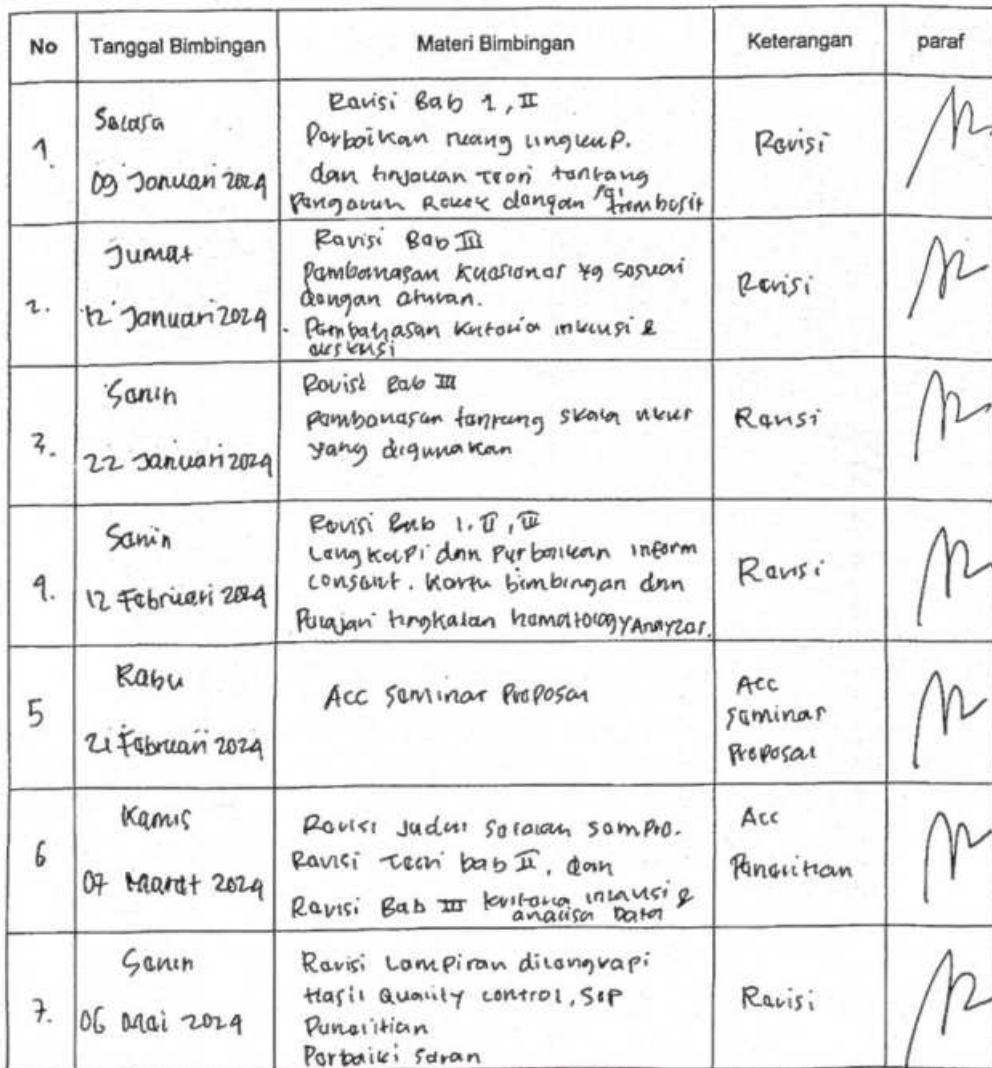 No Tanggal Bimbingan Materi Bimbingan Keterangan paraf
1.
Selasa
09 Januari 2024
Revisi Bab 1, II
Perbaikan ruang lingkup.
dan tinjauan teori tentang
pengaruh Rokok dengan trombosit
Revisi
2.
Jumat
12 Januari 2024
Revisi Bab III
pembahasan kuesioner yg sesuai
dengan aturan.
Pembahasan kriteria inklusi &
ekslusi
Revisi
3.
Senin
22 Januari 2024
Revisi Bab III
pembahasan tentang skala ukur
yang digunakan
Revisi
4.
Senin
12 Februari 2024
Revisi Bab I, II, III
Lengkapi dan Perbaikan inform
consent. Kartu bimbingan dan
Pelajari tingkatan hematology Analyzer.
Revisi
5
Rabu
21 Februari 2024
Acc seminar Proposal
Acc
seminar
Proposal
6
Kamis
07 Maret 2024
Revisi Judul setelah sempro.
Revisi Teori bab II, dan
Revisi Bab III kriteria inklusi &
analisa Data
Acc
Penelitian
7.
Senin
06 Mei 2024
Revisi Lampiran dilengkapi
Hasil Quality control, SOP
Penelitian
Perbaiki saran
Revisi